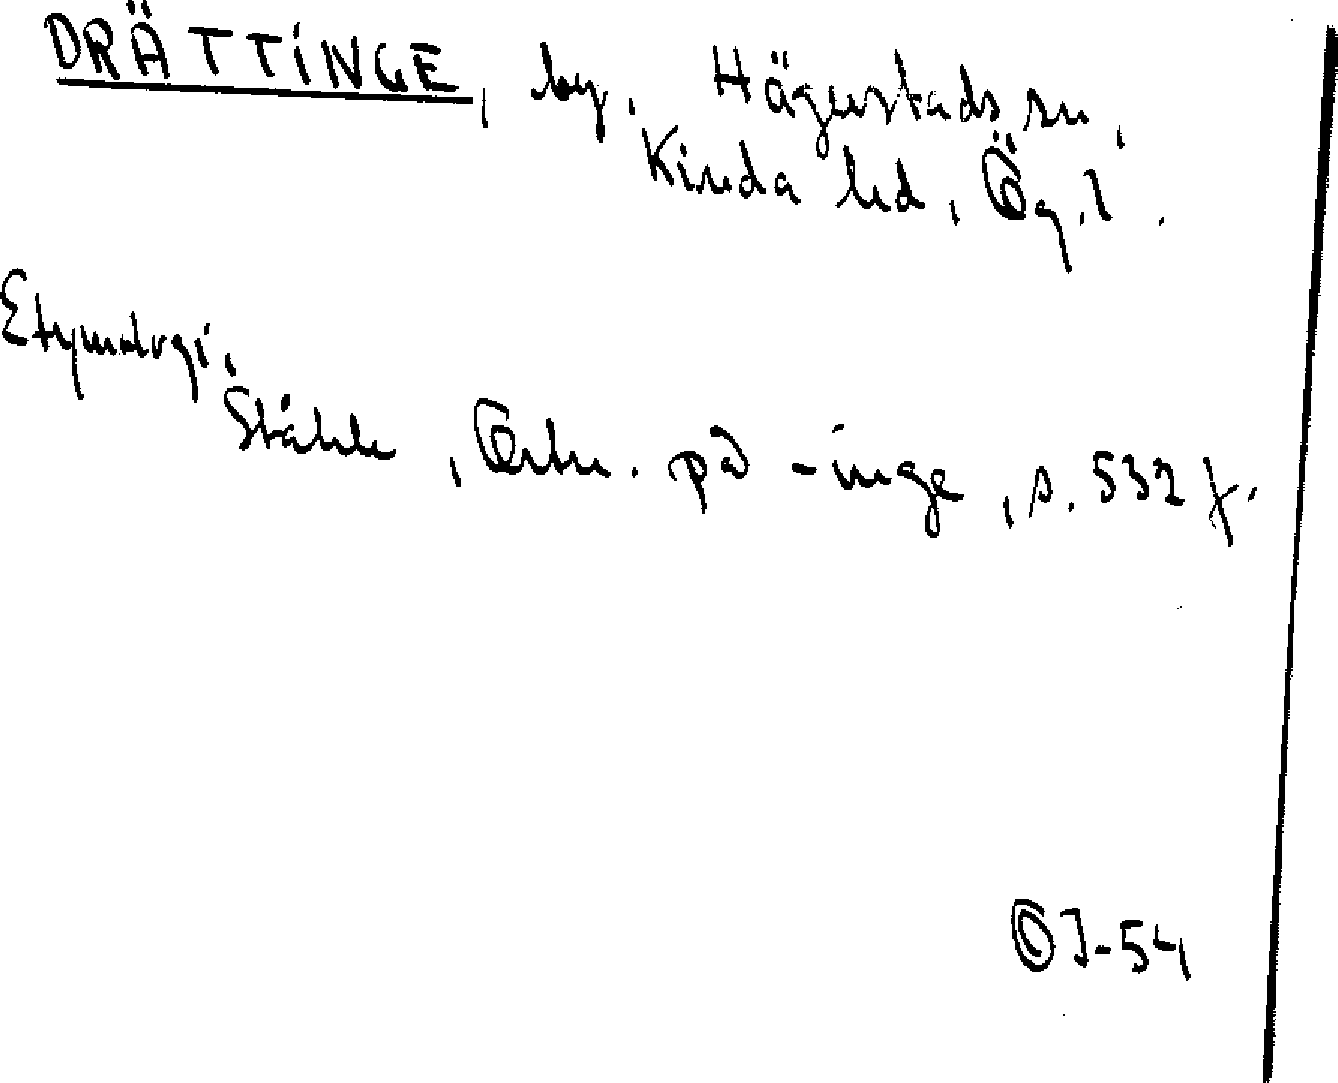 DRÄTTINGE, by, Hägerstads sn,
Kinda hd, Ög.l.
Etymologi.
Ståhle, Ortn. på -inge, s. 532 f.
OJ-54